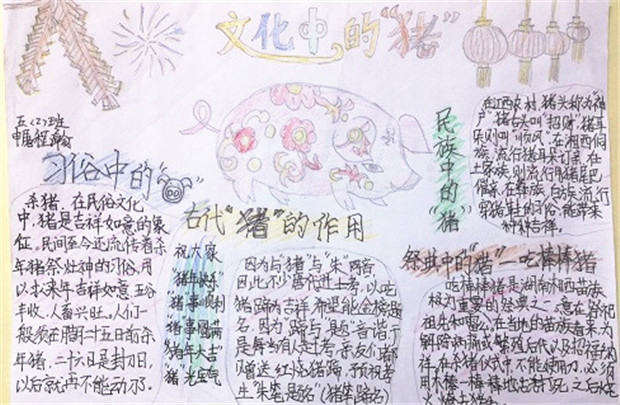 文化中的"猪"
五〈2〉班
习俗中的"
杀猪，在民俗文化
中，猪是吉祥如意的象
征。民间至今还流传着杀
年猪祭灶神的习俗，用
以求来年吉祥如意 五谷
丰收、人畜兴旺。人们一
般须在腊月二十五日前杀
年猪，二十六日是封刀日，
以后就再不能动刀了.
古代"猪"的作用
祝大家
"猪"年快乐
"猪"事顺利
"猪"事圆满
"猪"年大吉
"猪"光宝气
因为与"猪"与"朱"同音
因此,不少唐代进士考以吃
猪蹄为吉祥,希望能金榜题
名.因为"蹄"与"题"音谐于
是每当有人赶考,亲友们都
赠送红烧猪蹄,预祝考
生"朱笔题名"(猪蹄
民族中的"猪"
在江西农村,猪头称为"神
户"猪舌头叫"招财"猪耳
朵则叫"顺风".在湘西侗
族,流行猪耳朵订亲.在
土家族,则流行用猪尾巴
催亲.在彝族、白族,流行
穿猪鞋的习俗,能带来
吉祥.
祭典中的"猪"一吃棒棒猪
吃棒棒猪是湖南湘西苗族
极为重要的祭典之一.意在祭祀
祖先和雷公.在当地的苗族看来,为
后代以及招福纳
祥,在杀猪仪式中,不能使用刀,必须
用木棒一棒一棒地击打死之后